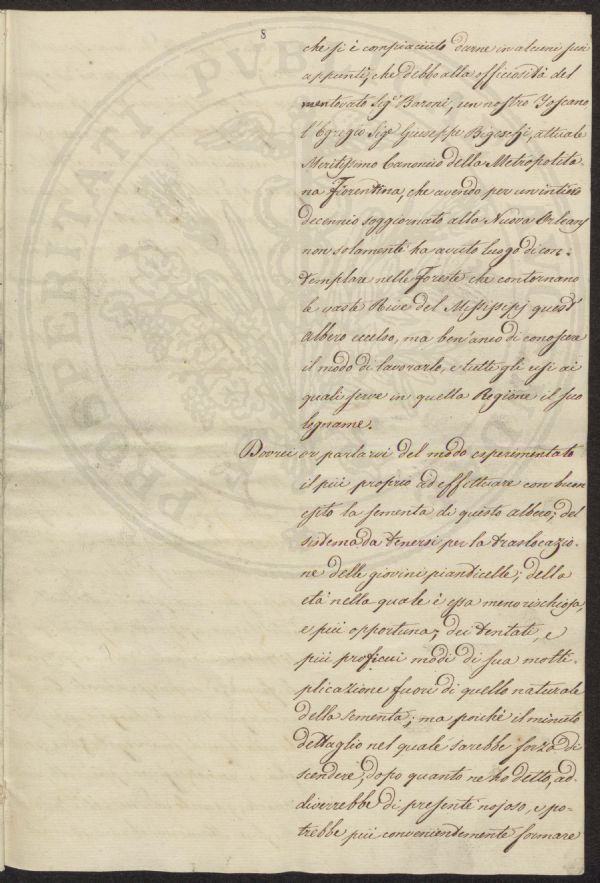 8
che si è compiaciuto darne in alcuni suoi
appunti, che debbo alla officiosità del
mentovato Sigr. Baroni, un nostro Toscano
l'Egregio Sigr. Giuseppe Bigeschi, attuale
Meritissimo Canonico della Metropolita-
na Fiorentina, che avendo per un intiero
decennio soggiornato alla Nuova Orleans
non solamente ha avuto luogo di con-
templare nelle Foreste che contornano
le vaste Rive del Mississipj quest'
albero eccelso, ma ben'anco di conoscere
il modo di lavorarlo, e tutti gli usi ai
quali serve in quella Regione il suo
legname.
Dovrei or parlarvi del modo esperimentato
il più proprio ad effettuare con buon
esito la sementa di questo albero; del
sistema da tenersi per la traslocazio-
ne delle giovini pianticelle; della
età nella quale è essa meno rischiosa,
e più opportuna; dei tentati, e
più proficui modi di sua molti-
plicazione fuori di quello naturale
della sementa; ma poichè il minuto
dettaglio nel quale sarebbe forza di
scendere, dopo quanto ne ho detto, ad-
diverrebbe di presente nojoso, e po-
trebbe più convenientemente formare
PROSPERITATI PVB